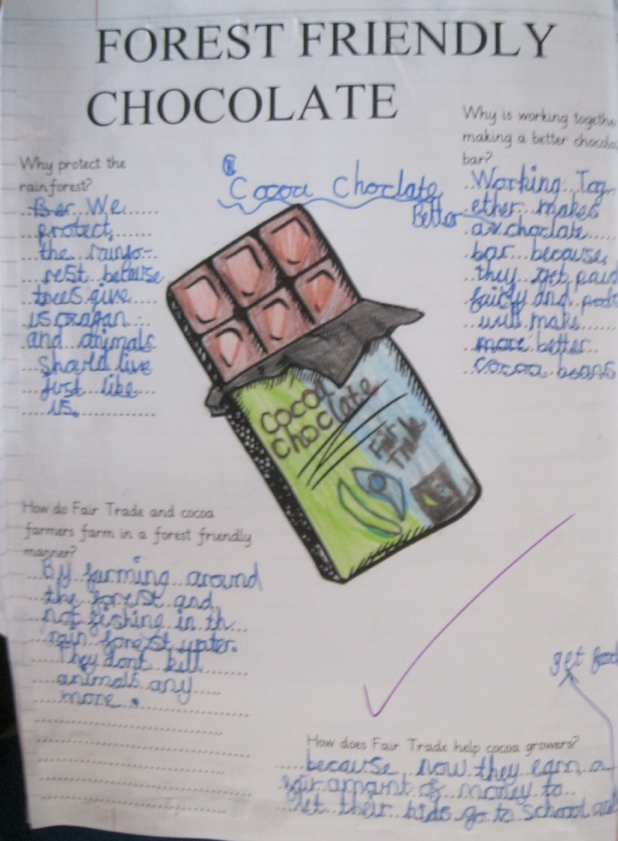 FOREST FRIENDLY
CHOCOLATE
Why protect the
rainforest?
We
protect
the rainfo-
rest because
trees give
us oxagan
and animals
should live
just like
us.
Cocoa Choclate
Why is working togethe
making a better chocola
bar?
Working Tog
ether makes
a choclate
Better
bar because
they get paid
fairly and
will make
more better
cocoa beans
cocoa
choclate
Fair
Trade
How do Fair Trade and cocoa
farmers farm in a forest friendly
manner?
By farming around
the forest and
not fishine in th
rain forest water.
They dont kill
animals any
more.
How does Fair Trade help cocoa growers?
because now they earn a
amount of money to
let their kids go to school and
get food